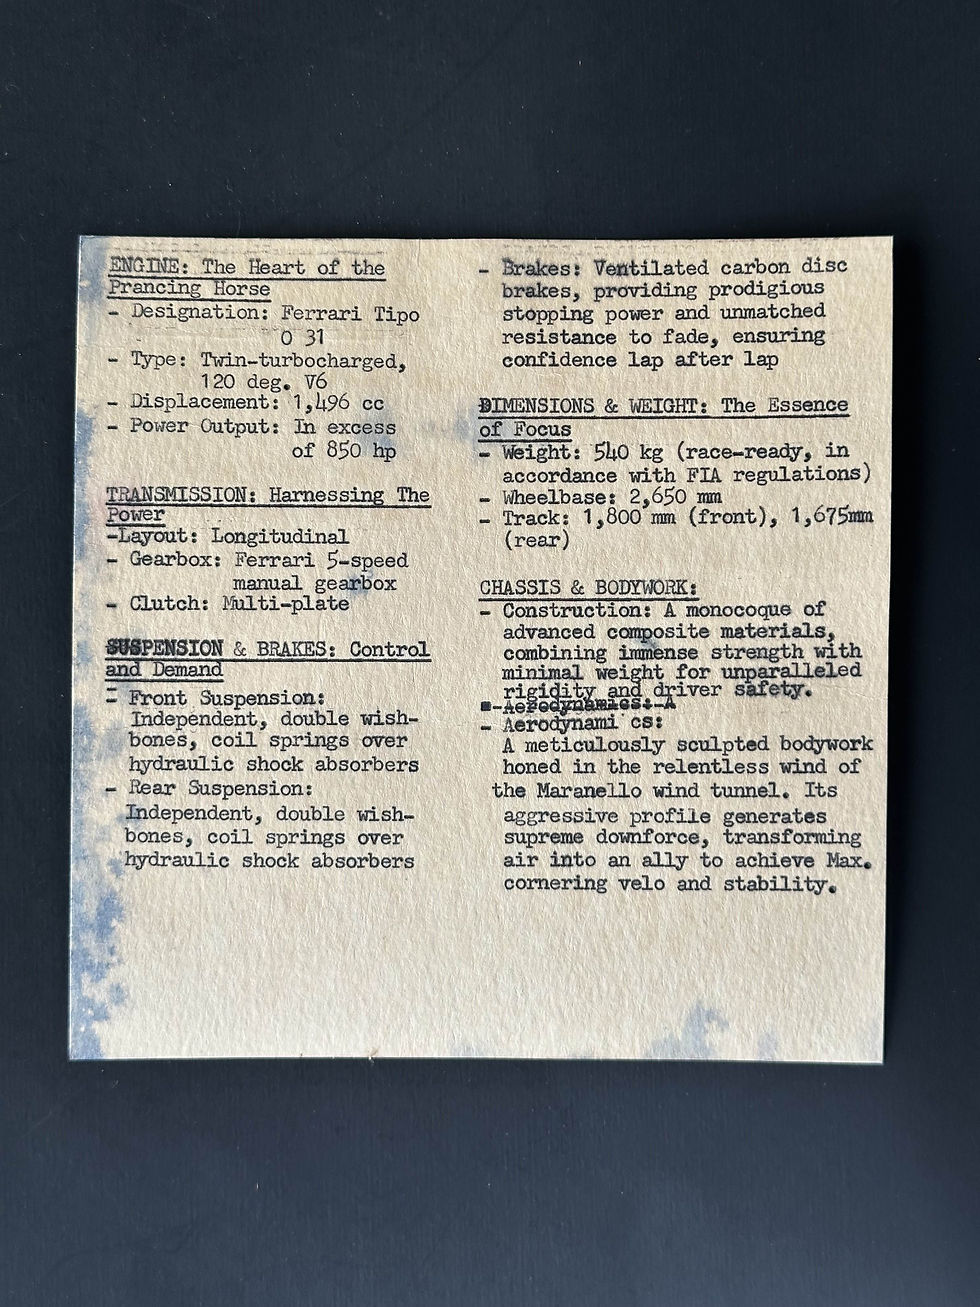 ENGINE: The Heart of the
Prancing Horse
- Designation: Ferrari Tipo
O 31
- Type: Twin-turbocharged,
120 deg. V6
- Displacement: 1,496 cc
- Power Output: In excess
of 850 hp
TRANSMISSION: Harnessing The
Power
-Layout: Longitudinal
- Gearbox: Ferrari 5-speed
manual gearbox
- Clutch: Multi-plate
SUSPENSION & BRAKES: Control
and Demand
- Front Suspension:
Independent, double wish-
bones, coil springs over
hydraulic shock absorbers
- Rear Suspension:
Independent, double wish-
bones, coil springs over
hydraulic shock absorbers
- Brakes: Ventilated carbon disc
brakes, providing prodigious
stopping power and unmatched
resistance to fade, ensuring
confidence lap after lap
DIMENSIONS & WEIGHT: The Essence
of Focus
- Weight: 540 kg (race-ready, in
accordance with FIA regulations)
- Wheelbase: 2,650 mm
- Track: 1,800 mm (front), 1,675mm
(rear)
CHASSIS & BODYWORK:
- Construction: A monocoque of
advanced composite materials,
combining immense strength with
minimal weight for unparalleled
rigidity and driver safety.
-Aerodynamics: A
- Aerodynami cs:
A meticulously sculpted bodywork
honed in the relentless wind of
the Maranello wind tunnel. Its
aggressive profile generates
supreme downforce, transforming
air into an ally to achieve Max.
cornering velo and stability.